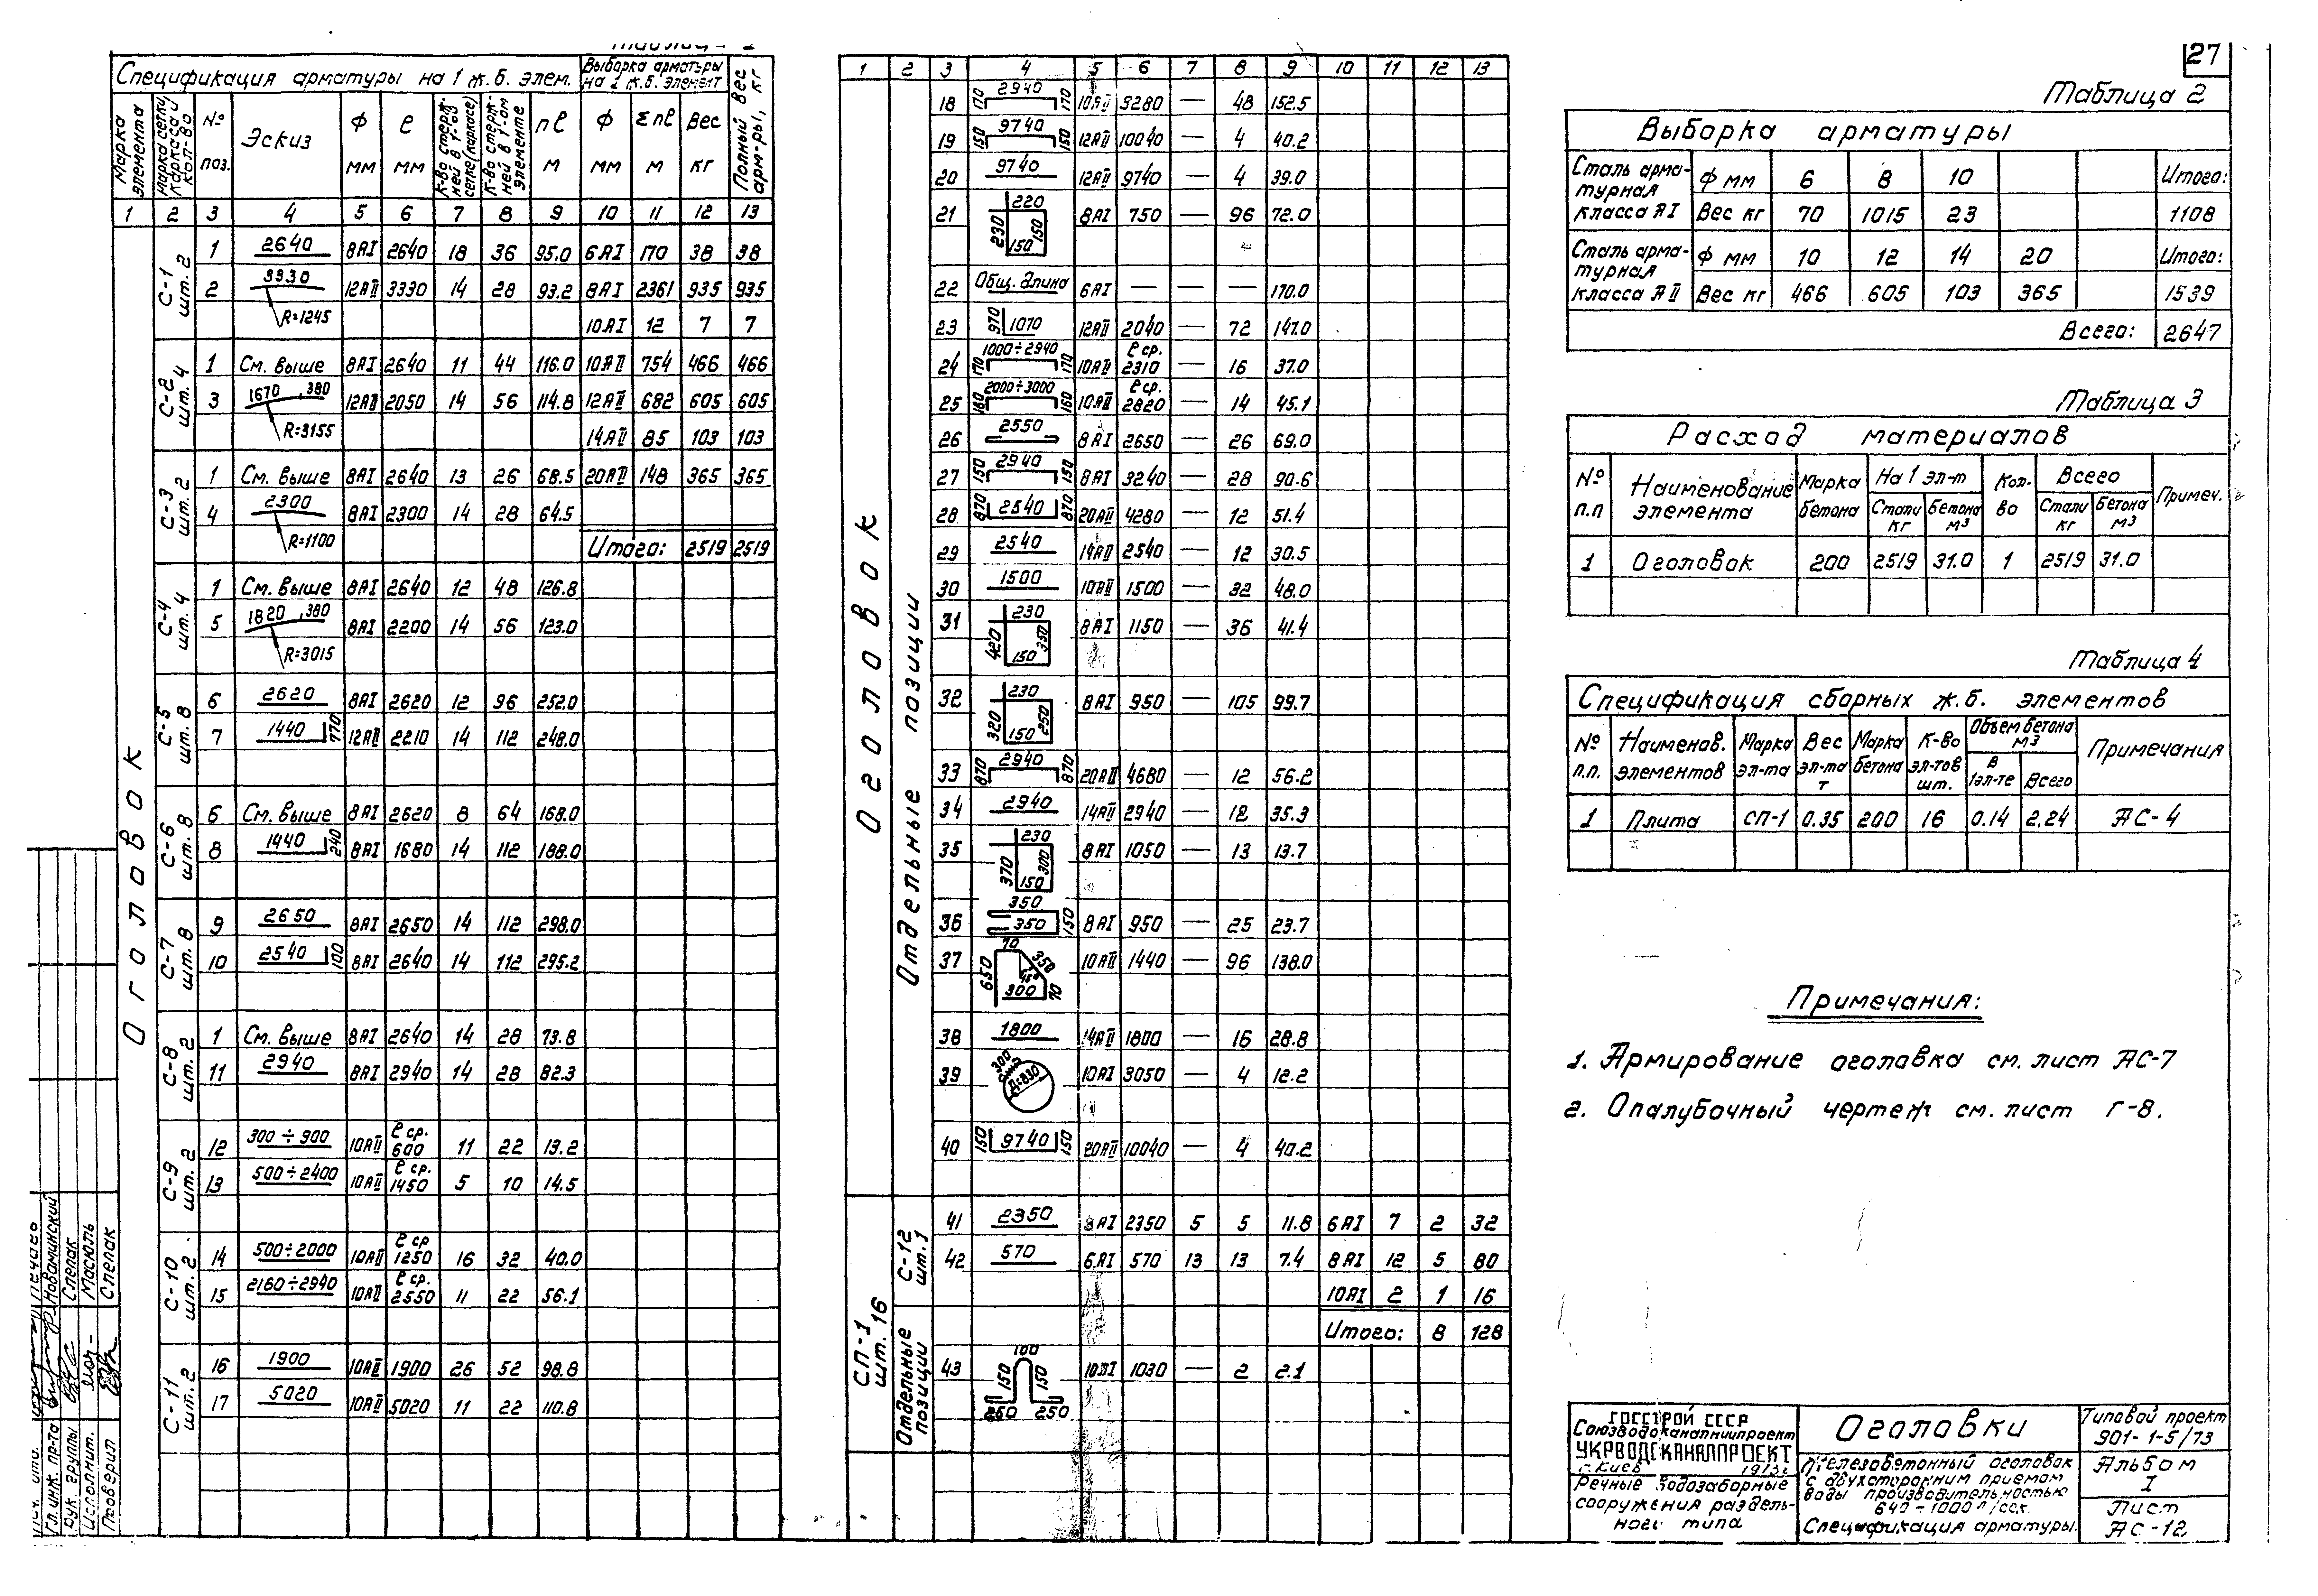 27
Спецификация арматуры на 1 ж.б. элем. Выборка арматуры на 1 ж.б. элемент Полный вес арм-ры, кг
Марка элемента Марка сетки, каркаса и кол-во № поз. Эскиз Ф мм ℓ мм К-во стержней в 1-ой сетке (каркасе) К-во стержней в 1-ом элементе nℓ м Ф мм Σnℓ м Вес кг
1 2 3 4 5 6 7 8 9 10 11 12 13
Оголовок
С-1 шт. 2
1 2640 8АI 2640 18 36 95.0 6АI 170 38 38
2 3330 R=1245 12АII 3330 14 28 93.2 8АI 2361 935 935
10АI 12 7 7
С-2 шт. 4
1 См. выше 8АI 2640 11 44 116.0 10АII 754 466 466
3 1670 380 R=3155 12АII 2050 14 56 114.8 12АII 682 605 605
14АII 85 103 103
С-3 шт. 2
1 См. выше 8АI 2640 13 26 68.5 20АII 148 365 365
4 2300 R=1100 8АI 2300 14 28 64.5
Итого: 2519 2519
С-4 шт. 4
1 См. выше 8АI 2640 12 48 126.8
5 1820 380 R=3015 8АI 2200 14 56 123.0
С-5 шт. 8
6 2620 8АI 2620 12 96 252.0
7 1440 770 12АII 2210 14 112 248.0
С-6 шт. 8
6 См. выше 8АI 2620 8 64 168.0
8 1440 240 8АI 1680 14 112 188.0
С-7 шт. 8
9 2650 8АI 2650 14 112 298.0
10 2540 100 8АI 2640 14 112 295.2
С-8 шт. 2
1 См. выше 8АI 2640 14 28 73.8
11 2940 8АI 2940 14 28 82.3
С-9 шт. 2
12 300÷900 10АII ℓ ср. 600 11 22 13.2
13 500÷2400 10АII ℓ ср. 1450 5 10 14.5
С-10 шт. 2
14 500÷2000 10АII ℓ ср 1250 16 32 40.0
15 2160÷2940 10АII ℓ ср. 2550 11 22 56.1
С-11 шт. 2
16 1900 10АII 1900 26 52 98.8
17 5020 10АII 5020 11 22 110.8
1 2 3 4 5 6 7 8 9 10 11 12 13
Оголовок
Отдельные позиции
18 170 2940 170 10АII 3280 — 48 152.5
19 150 9740 150 12АII 10040 — 4 40.2
20 9740 12АII 9740 — 4 39.0
21 220 230 150 150 8АI 750 — 96 72.0
22 Общ. длина 6АI — — — 170.0
23 970 1070 12АII 2040 — 72 147.0
24 170 1000÷2940 170 10АII ℓ ср. 2310 — 16 37.0
25 160 2000÷3000 160 10АII ℓ ср. 2820 — 14 45.1
26 2550 8АI 2650 — 26 69.0
27 150 2940 150 8АI 3240 — 28 90.6
28 870 2540 870 20АII 4280 — 12 51.4
29 2540 14АII 2540 — 12 30.5
30 1500 10АII 1500 — 32 48.0
31 230 420 350 150 8АI 1150 — 36 41.4
32 230 320 250 150 8АI 950 — 105 99.7
33 870 2940 870 20АII 4680 — 12 56.2
34 2940 14АII 2940 — 12 35.3
35 230 370 300 150 8АI 1050 — 13 13.7
36 350 350 150 8АI 950 — 25 23.7
37 70 650 350 45° 300 70 10АII 1440 — 96 138.0
38 1800 14АII 1800 — 16 28.8
39 300 Д=830 10АI 3050 — 4 12.2
40 150 9740 150 20АII 10040 — 4 40.2
СП-1 шт. 16
С-12 шт. 1
41 2350 8АI 2350 5 5 11.8 6АI 7 2 32
42 570 6АI 570 13 13 7.4 8АI 12 5 80
10АI 2 1 16
Итого: 8 128
Отдельные позиции
43 100 150 150 250 250 10АI 1030 — 2 2.1
Таблица 2
Выборка арматуры
Сталь арматурная класса АI Ф мм 6 8 10 Итого:
Вес кг 70 1015 23 1108
Сталь арматурная класса АII Ф мм 10 12 14 20 Итого:
Вес кг 466 605 103 365 1539
Всего: 2647
Таблица 3
Расход материалов
№ п.п Наименование элемента Марка бетона На 1 эл-т Стали кг Бетона м³ Кол-во Всего Стали кг Бетона м³ Примеч.
1 Оголовок 200 2519 31.0 1 2519 31.0
Таблица 4
Спецификация сборных ж.б. элементов
№ п.п. Наименов. элементов Марка эл-та Вес эл-та т Марка бетона К-во эл-тов шт. Объем бетона м³ В 1эл-те Всего Примечания
1 Плита СП-1 0.35 200 16 0.14 2.24 АС-4
Примечания:
1. Армирование оголовка см. лист АС-7
2. Опалубочный чертеж см. лист Г-8.
ГОССТРОЙ СССР
Союзводоканалниипроект
УКРВОДОКАНАЛПРОЕКТ
г. Киев 1973г
Речные водозаборные
сооружения раздель-
ного типа
Оголовки
Железобетонный оголовок
с двухсторонним приемом
воды производительностью
640-1000 л/сек.
Спецификация арматуры.
Типовой проект
901-1-5/73
Альбом
I
Лист
АС-12
Гл. инж. пр-та Новоминский
Рук. группы Слепак
Исполнит. Масюль
Проверил Слепак